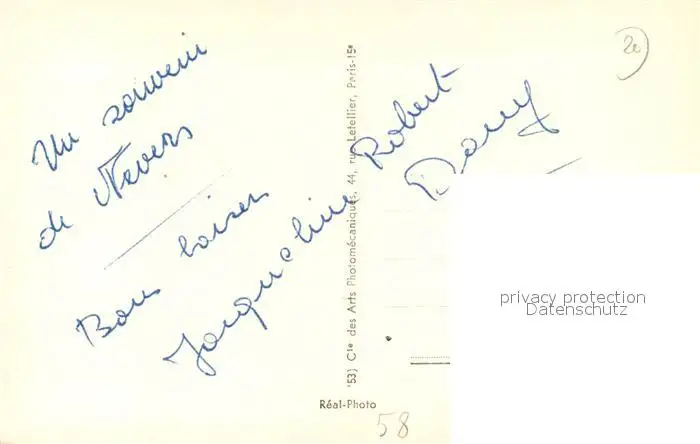 Un souvenir
de Nevers
Bons baisers
Jacqueline Robert
Dany
'53) Cie des Arts Photomécaniques, 44, rue Letellier, Paris-15e
Réal-Photo
58
2e
privacy protection
Datenschutz